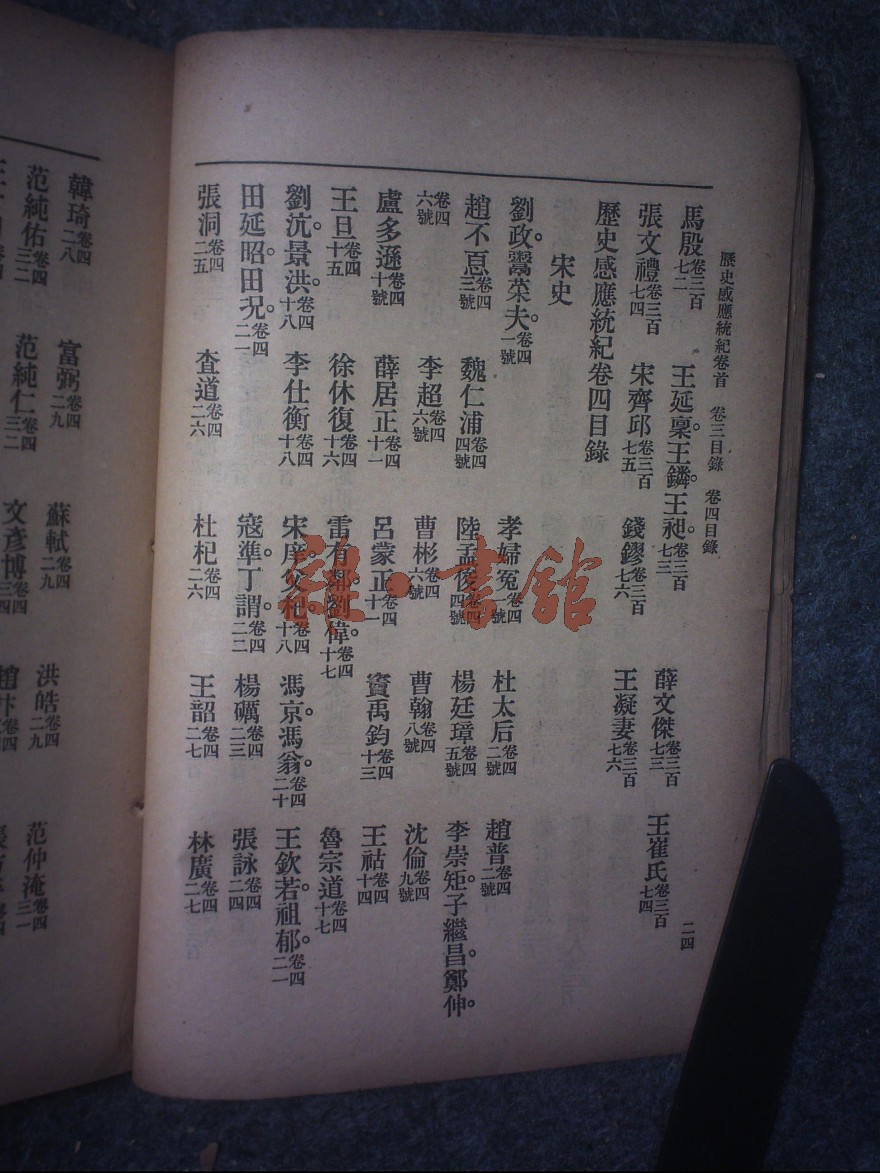 歷史感應統紀卷首　卷三目錄　卷四目錄　二四
馬殷卷三百七二　王延稟。王鏻。王昶。卷三百七三　薛文傑卷三百七三　王崔氏卷三百七四
張文禮卷三百七四　宋齊邱卷三百七五　錢鏐卷三百七六　王凝妻卷三百七六
歷史感應統紀卷四目錄
宋史
劉政。鬻菜夫。卷四一號　孝婦冤卷四一號　杜太后卷四二號　趙普卷四二號
趙不卷四三號　魏仁浦卷四四號　陸孟俊卷四四號　楊廷璋卷四五號　李崇矩。子繼昌。鄭伸。
卷四六號　李超卷四六號　曹彬卷四六號　曹翰卷四八號　沈倫卷四九號
盧多遜卷四十號　薛居正卷四十一　呂蒙正卷四十一　竇禹鈞卷四十三　王祜卷四十四
王旦卷四十五　徐休復卷四十六　雷有鄰。劉偉。卷四十七　魯宗道卷四十七
劉沆。景洪。卷四十八　李仕衡卷四十八　宋庠。父杞。卷四十八　馮京。馮翁。卷四二十　王欽若。祖郁。卷四二一
田延昭。田況。卷四二一　寇準。丁謂。卷四二二　楊礪卷四二三　張詠卷四二四
張洞卷四二五　查道卷四二六　杜杞卷四二六　王韶卷四二七　林廣卷四二七
韓琦卷四二八　富弼卷四二九　蘇軾卷四二九　洪皓卷四二九　范仲淹卷四三一
范純佑卷四三二　范純仁卷四三二　文彥博卷四三四
雜·書館